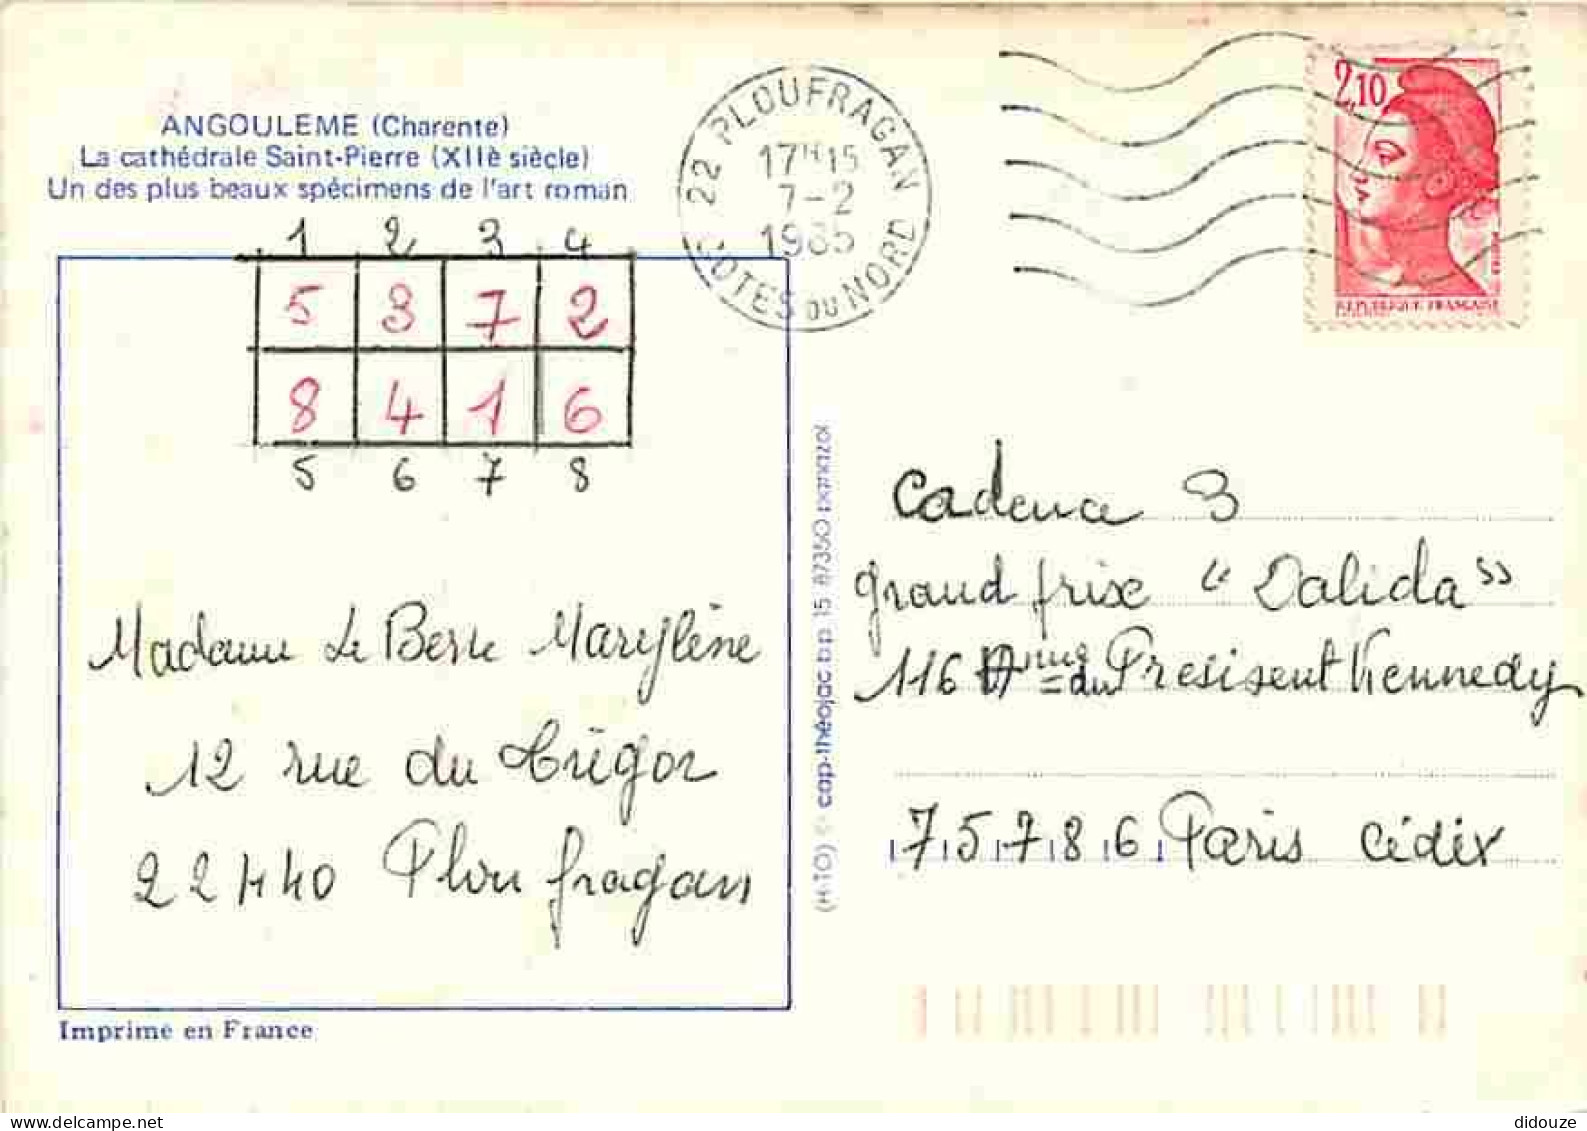 ANGOULEME (Charente)
La cathédrale Saint-Pierre (XIIè siècle)
Un des plus beaux spécimens de l'art roman
1 2 3 4
5 3 7 2
8 4 1 6
5 6 7 8
Madame Le Berre Marylène
12 rue du Trégor
22440 Ploufragan
Imprimé en France
22 PLOUFRAGAN
17H15
7-2
1985
COTES DU NORD
2,10
REPUBLIQUE FRANÇAISE
(HTO) © cap-théojac b.p. 15 87350 panazol
Cadence 3
grand prix "Dalida"
116 du Presisent Kennedy
75786 Paris Cédex
didouze